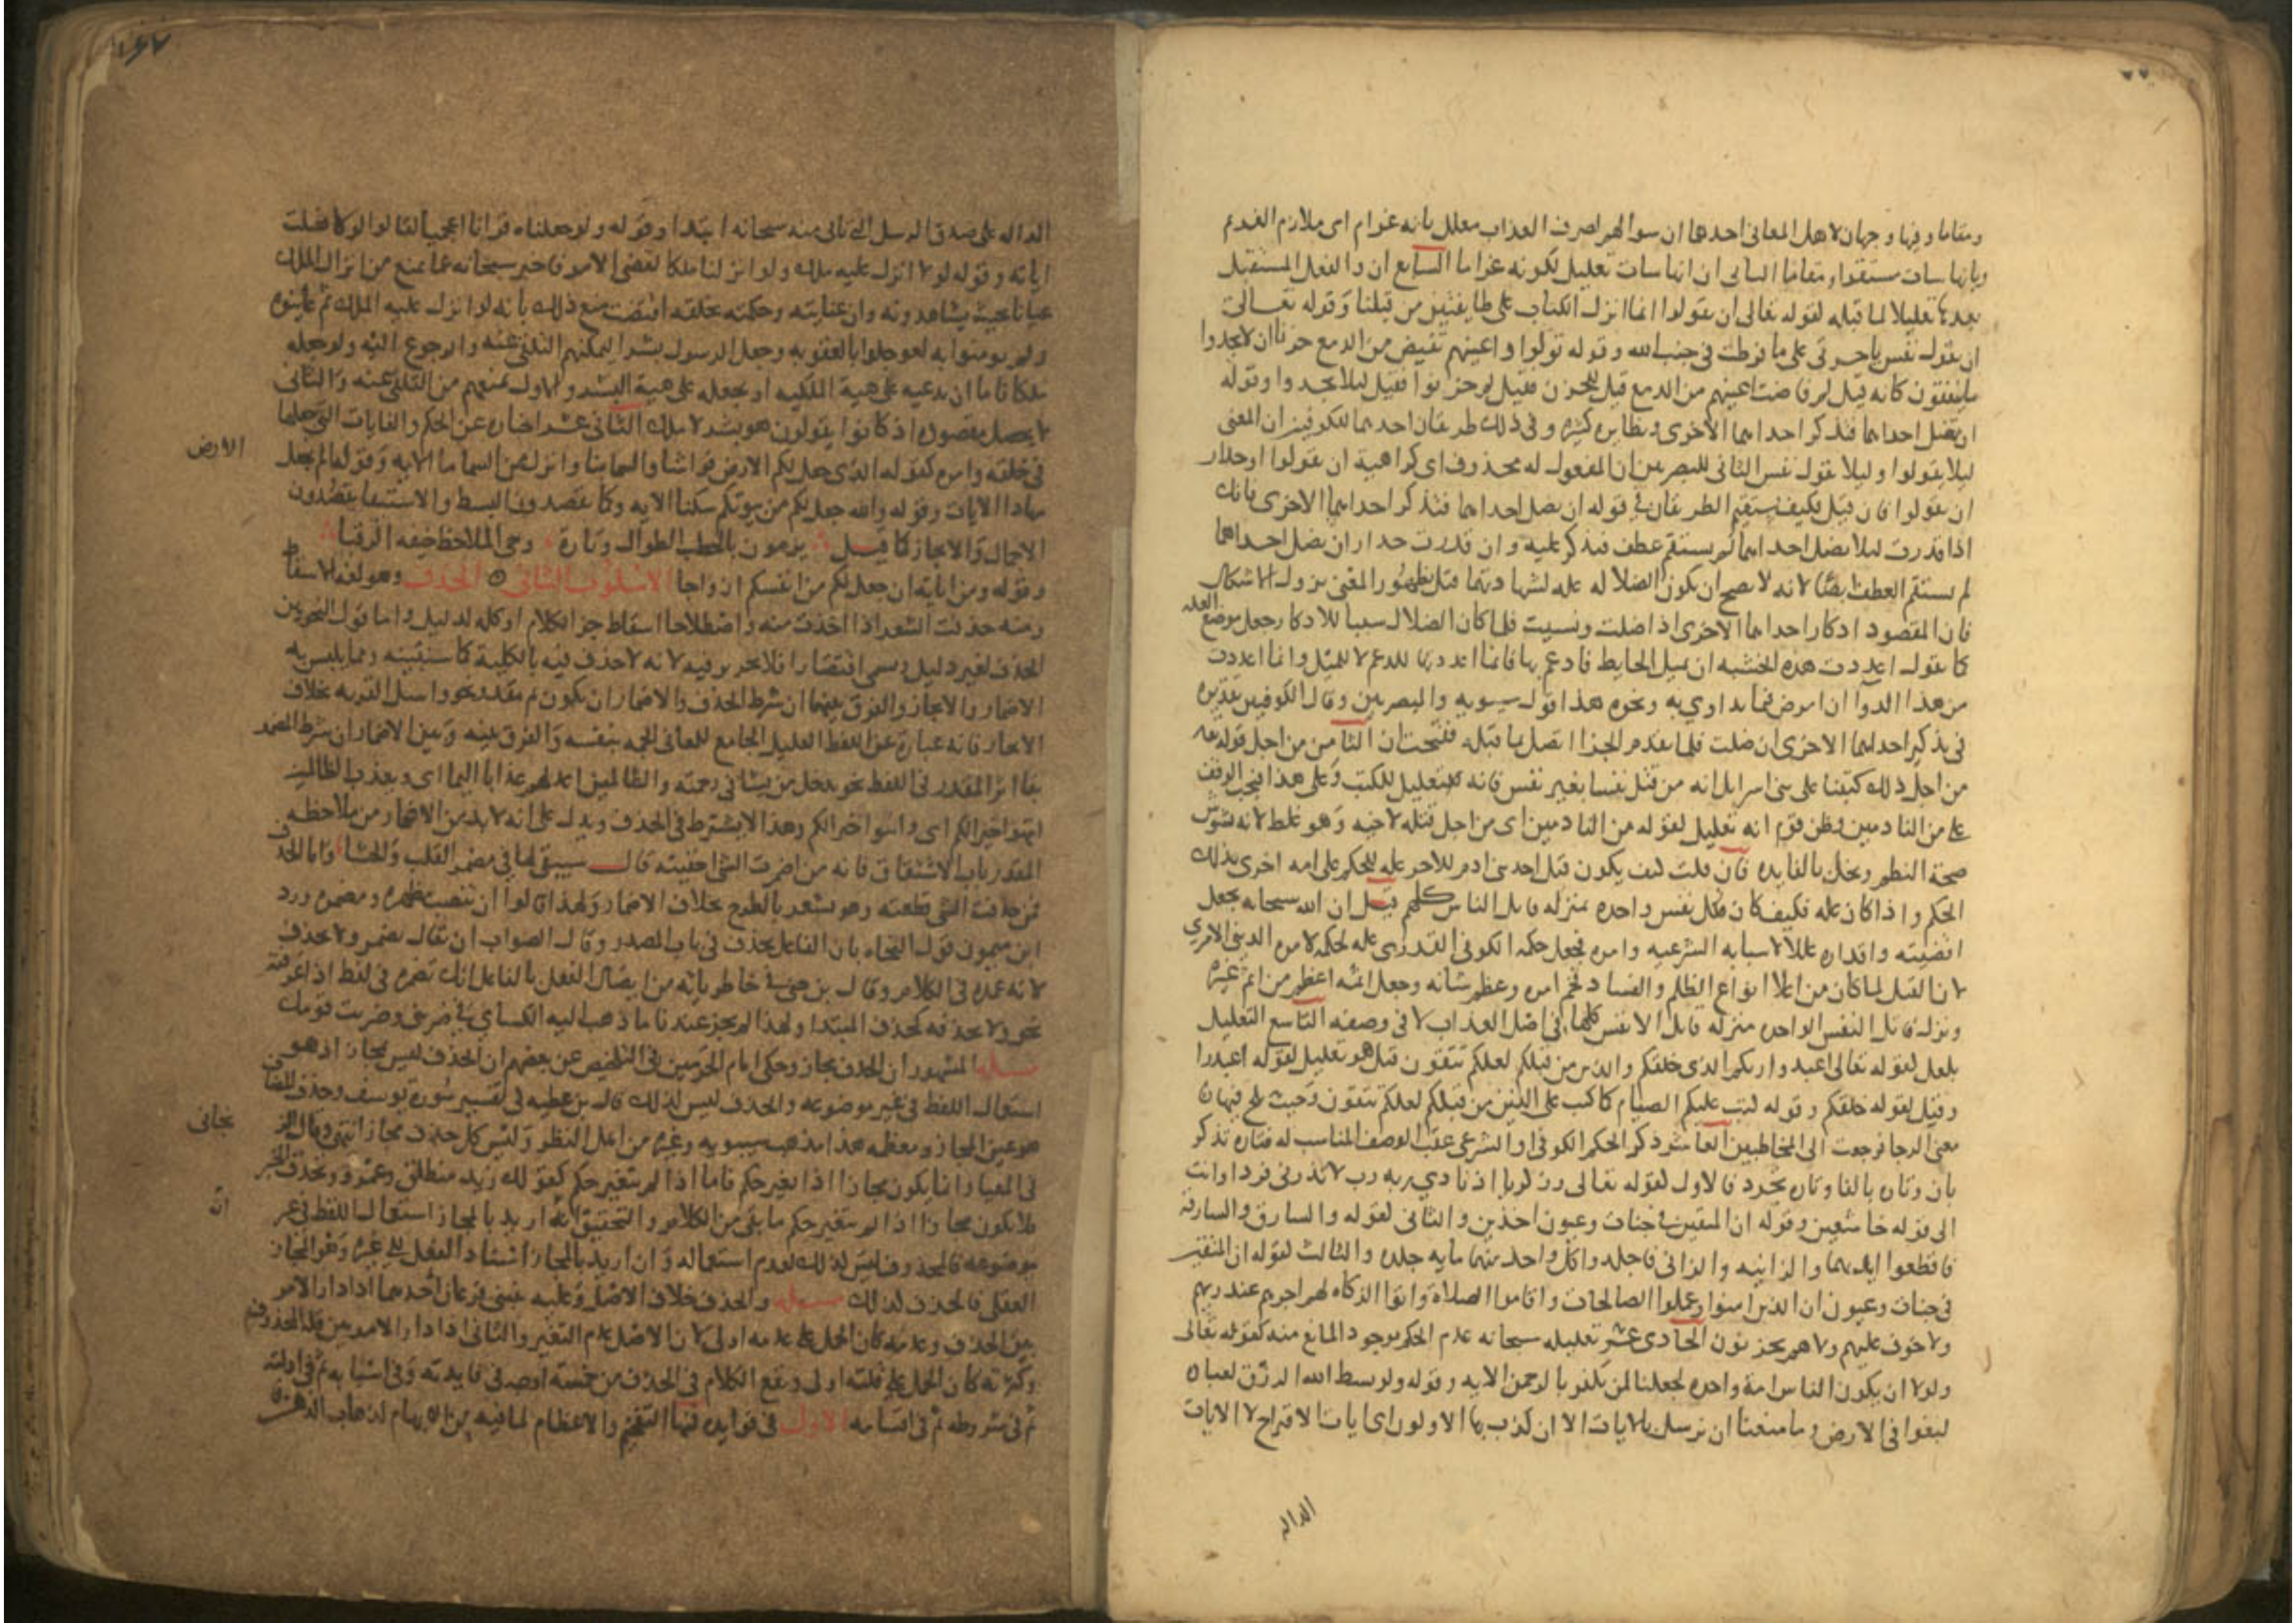 ومقاما وفيها وجهان لاهل المعاني احدها ان سوالهم لصرف العذاب معلل بانه غرام اي ملازم الغريم
وبانها سات مستقرا ومقاما الثاني ان انها سات تعليل لكونه غراما السابع ان والفعل المستقبل
بعدها تعليلا لما قبله لقوله تعالى ان تقولوا انما انزل الكتاب على طايفتين من قبلنا وقوله تعالى
ان تقول نفس ياحسرتى على ما فرطت في جنب الله وقوله تولوا واعينهم تفيض من الدمع حزنا ان لا يجدوا
ما ينفقون كانه قيل لم فاضت اعينهم من الدمع قيل للحزن فقيل لم حزنوا فقيل ليلا يجدوا وقوله
ان تضل احداهما فتذكر احداهما الاخرى ونظايره كثيرة وفي ذلك طريقان احدهما للكوفيين ان المعنى
ليلا يقولوا وليلا تقول نفس الثاني للبصريين ان المفعول له محذوف اي كراهية ان تقولوا او حذار
ان تقولوا فان قيل فكيف يستقيم الطريقان في قوله ان تضل احداهما فتذكر احداهما الاخرى فانك
اذا قدرت ليلا تضل احداهما لم يستقم عطف فتذكر عليه وان قدرت حذار ان تضل احداهما
لم يستقم العطف ايضا لانه لا يصح ان يكون الضلال علة لشهادتهما قيل بظهور المعنى يزول الاشكال
فان المقصود اذكار احداهما الاخرى اذا ضلت ونسيت فلما كان الضلال سببا للاذكار جعل موضع العلة
كما تقول اعددت هذه الخشبه ان يميل الحايط فادعم بها فانما اعددتها للدعم لا للميل وانما اعددت
من هذا الدوا ان امرض فتداوي به ونحوه هذا قول سيبويه والبصريين وقال الكوفيين تقديره
في تذكير احداهما الاخرى ان ضلت فلما تقدم الجزا اتصل بما قبله ففتحت ان الثامن من اجل قوله
من اجل ذلك كتبنا على بني اسراييل انه من قتل نفسا بغير نفس فانه للتعليل للكتب وعلى هذا فيجب الوقف
على من النادمين وظن قوم انه تعليل لقوله من النادمين اي من اجل قتله لاخيه وهو غلط لانه يشوش
صحة النظم ويخل بالفايده فان قلت كيف يكون قتل احد بني ادم للاخر علة للحكم على امه اخرى بذلك
الحكم واذا كان علة فكيف كان قتل نفس واحده بمنزلة قاتل الناس كلهم قيل ان الله سبحانه يجعل
اقضيته واقداره عللا لاسبابه الشرعيه وامره فجعل حكمه الكوني القدري علة لحكمه لامره الديني الامري
لان القتل لما كان من اعلا انواع الظلم والفساد فخم امره وعظم شانه وجعل اثمه اعظم من اثم غيره
ونزل قاتل النفس الواحده منزلة قاتل الانفس كلها في اصل العذاب لا في وصفه التاسع التعليل
بلعل لقوله تعالى اعبدوا ربكم الذي خلقكم والذين من قبلكم لعلكم تتقون قيل هو تعليل لقوله اعبدوا
وقيل لقوله خلقكم وقوله كتب عليكم الصيام كما كتب على الذين من قبلكم لعلكم تتقون وحيث فيها ان
معنى الرجا فرجعت الى المخاطبين العاشر ذكر الحكم الكوني او الشرعي عقب الوصف المناسب له فتارة تذكر
بان وتارة بالفا وتارة يجرد فالاول لقوله تعالى وزكريا اذ نادى ربه رب لا تذرني فردا وانت
الى قوله خاشعين وقوله ان المتقين في جنات وعيون اخذين والثاني لقوله والسارق والسارقة
فاقطعوا ايديهما والزانية والزاني فاجلدوا كل واحد منهما ماية جلدة والثالث لقوله ان المتقين
في جنات وعيون ان الذين امنوا وعملوا الصالحات واقاموا الصلاة واتوا الزكاة لهم اجرهم عند ربهم
ولا خوف عليهم ولا هم يحزنون الحادي عشر تعليله سبحانه عدم الحكم بوجود المانع منه كقوله تعالى
ولولا ان يكون الناس امة واحده لجعلنا لمن يكفر بالرحمن الايه وقوله ولو بسط الله الرزق لعباده
لبغوا في الارض وما منعنا ان نرسل بالايات الا ان كذب بها الاولون اي ايات الاقتراح لا الايات
الداله
١٤٧
الداله على صدق الرسل التي تاتي منه سبحانه ابتدا وقوله ولو جعلناه قرانا اعجميا لقالوا لولا فصلت
اياته وقوله لولا انزل عليه ملك ولو انزلنا ملكا لقضي الامر فاخبر سبحانه عما يمنع من انزال الملك
عيانا بحيث يشاهدونه وان عنايته وحكمته بخلقه اقتضت منع ذلك بانه لو انزل عليه الملك ثم عاينوه
ولم يومنوا به لعوجلوا بالعقوبه وجعل الرسول بشرا ليمكنهم التلقي عنه والرجوع اليه ولو جعله
ملكا فاما ان يدعيه على هيئة الملكيه او يجعله على هيئة البشر والاول يمنعهم من التلقي عنه والثاني
لا يحصل مقصوده اذ كانوا يقولون هو بشر لا ملك الثاني عشر اخباره عن الحكم والغايات التي جعلها
في خلقه وامره كقوله الذي جعل لكم الارض فراشا والسما بنا وانزل من السما ما الايه وقوله الم نجعل الارض
مهادا الايات وقوله والله جعل لكم من بيوتكم سكنا الايه وكما يقصدون البسط والاستيفا يقصدون
الاجمال والايجاز كما قيل يرمون بالخطب الطوال وتارة وحي الملاحظ خيفة الرقبا
وقوله ومن اياته ان جعل لكم من انفسكم ازواجا الاسلوب الثاني الحذف وهو لغة الاسقاط
ومنه حذفت الشعر اذا اخذت منه واصطلاحا اسقاط جز الكلام او كله لدليل واما قول النحويين
الحذف لغير دليل ويسمى اقتصارا فلا تحرير فيه لانه لا حذف فيه بالكلية كما سنبينه ومما يلتبس به
الاضمار والايجاز والفرق بينهما ان شرط الحذف والاضمار ان يكون ثم مقدر نحو واسال القرية بخلاف
الايجاز فانه عبارة عن اللفظ القليل الجامع للمعاني الجمه بنفسه والفرق بينه وبين الاضمار ان شرط المضمر
بقا اثر المقدر في اللفظ نحو يدخل من يشا في رحمته والظالمين اعد لهم عذابا اليما اي ويعذب الظالمين
انتهوا خيرا لكم اي واتوا خيرا لكم وهذا لا يشترط في الحذف ويدل على انه لا بد من الاضمار من ملاحظة
المقدر باب الاشتقاق فانه من اضمرت الشي اخفيته قال سيبقى لها في مضمر القلب والحشا واما الحذف
فمن حذفت الشي قطعته وهو يشعر بالطرح بخلاف الاضمار ولهذا قالوا ان تنصب مظهره ومضمره ورد
ابن ميمون قول النحاه بان الفاعل يحذف في باب المصدر وقال الصواب ان يقال يضمر ولا يحذف
لانه عمدة في الكلام وقال بن جني في خاطرياته من اتصال الفعل بالفاعل انك تضمره في لفظ اذا عرفته
نحو ولا تحذفه كحذف المبتدا ولهذا لم يجز عندنا ما ذهب اليه الكساي في ضربني وضربت قومك
مساله المشهور ان الحذف مجاز وحكى امام الحرمين في التلخيص عن بعضهم ان الحذف ليس بمجاز اذ هو
استعمال اللفظ في غير موضوعه والحذف ليس كذلك قال بن عطيه في تفسير سورة يوسف وحذف المضاف
هو عين المجاز ومعظمه هذا مذهب سيبويه وغيره من اهل النظر وليس كل حذف مجازا انتهى وقال الزنجاني
في المعيار انما يكون مجازا اذا تغير حكم فاما اذا لم يتغير حكم كقولك زيد منطلق وعمرو وتحذف الخبر
فلا يكون مجازا اذا لم يتغير حكم ما بقي من الكلام والتحقيق انه ان اريد بالمجاز استعمال اللفظ في غير
موضوعه فالمحذوف ليس كذلك لعدم استعماله وان اريد بالمجاز اسناد الفعل الى غيره وهو المجاز
العقلي فالحذف كذلك مساله والحذف خلاف الاصل وعليه ينبني فرعان احدهما اذا دار الامر
بين الحذف وعدمه كان الحمل على عدمه اولى لان الاصل عدم التغير والثاني اذا دار الامر بين قلة المحذوف
وكثرته كان الحمل على قلته اولى ويقع الكلام في الحذف من خمسة اوجه في فايدته وفي اسبابه ثم في ادلته
ثم في شروطه ثم في اقسامه الاول في فوايده فمنها التفخيم والاعظام لما فيه من الابهام لذهاب الذهن